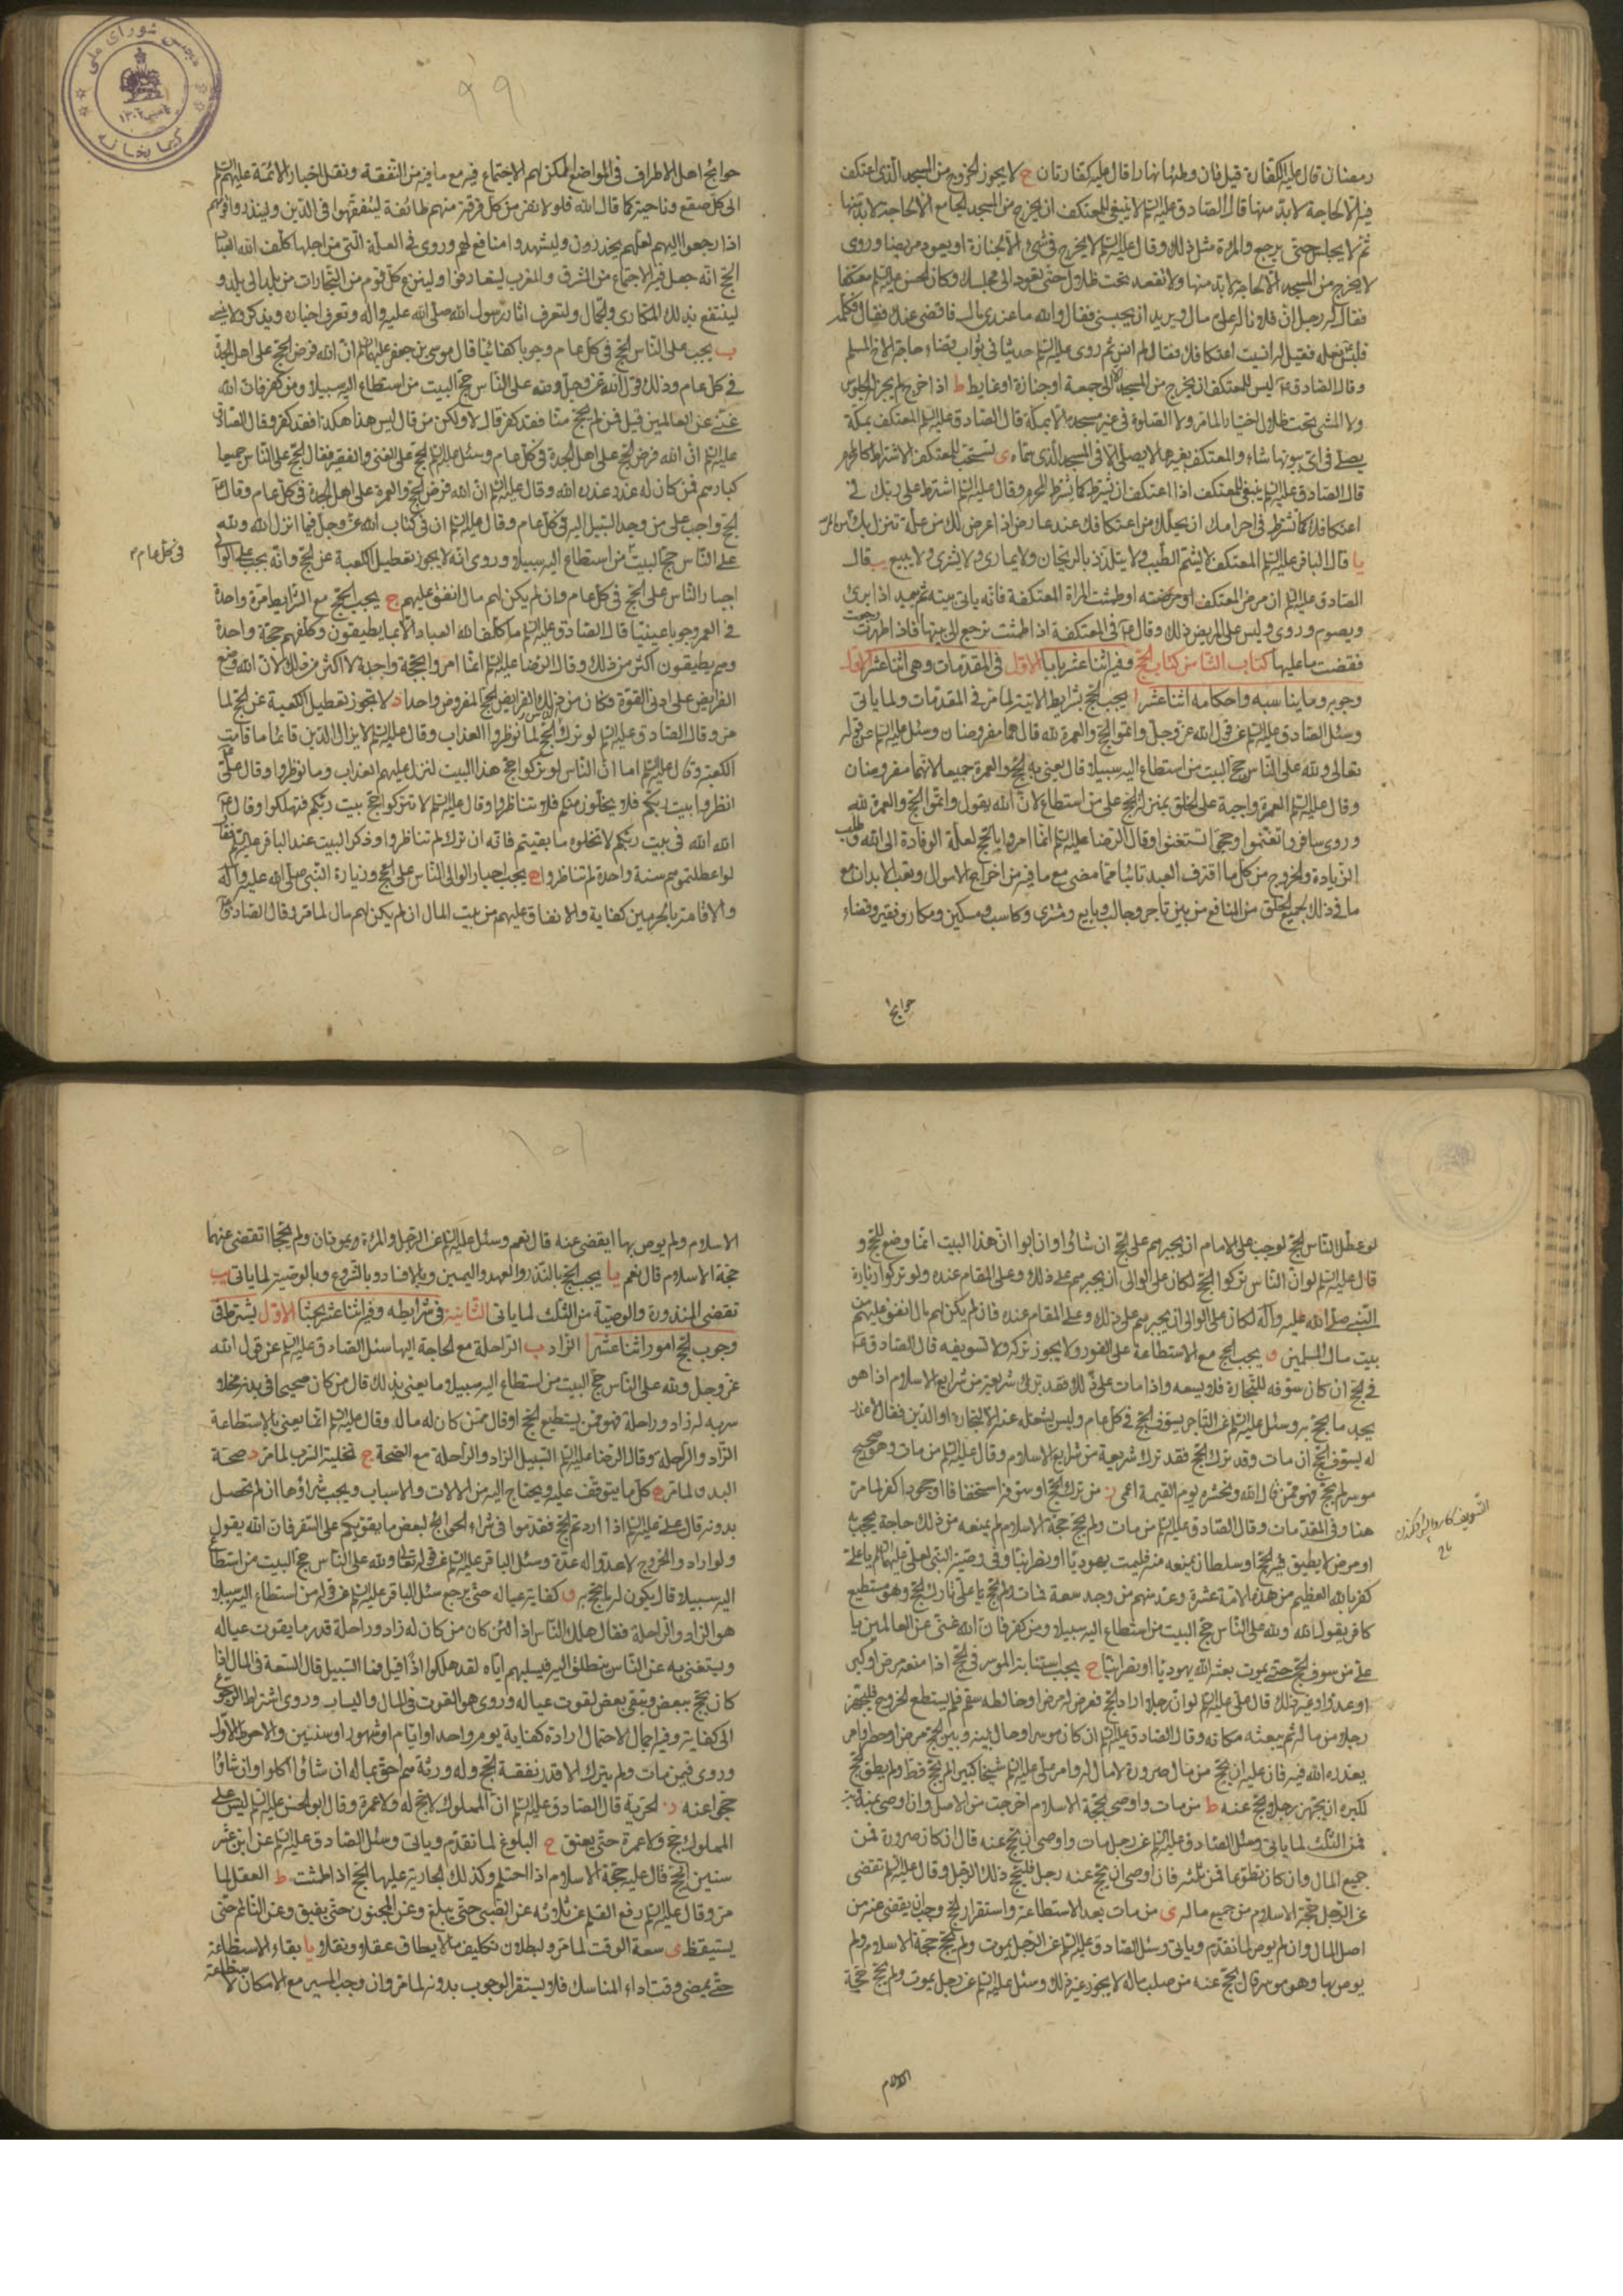 رمضان قال عليه الكفارة قيل فان وطئها نهارا قال عليه كفارتان ح لا يجوز الخروج من المسجد الذى اعتكف
فيه الا لحاجة لا بد منها قال الصادق عليه السلم لا ينبغى للمعتكف ان يخرج من المسجد الجامع الا لحاجة لا بد منها
ثم لا يجلس حتى يرجع والمرءة مثل ذلك وقال عليه السلم لا يخرج فى شىء الا لجنازة او يعود مريضا وروى
لا يخرج من المسجد الا لحاجة لا بد منها ولا تقعد تحت ظلال حتى تعود الى مجلسك وكان الحسن عليه السلم معتكفا
فقال له رجل ان فلانا له على مال ويريد ان يحبسنى فقال والله ما عندى مال فاقضى عنك فقال فكلمه
فلبس نعله فقيل له انسيت اعتكافك فقال لم انس ثم روى عليه السلم حديثا فى ثواب قضاء حاجة الاخ المسلم
وقال الصادق ع ليس للمعتكف ان يخرج من المسجد الا الى جمعة او جنازة او غايط ط اذا خرج لم يجز الجلوس
ولا المشى تحت ظلال اختيارا لما مر ولا الصلوة فى غير مسجده الا بمكة قال الصادق عليه السلم المعتكف بمكة
يصلى فى اى بيوتها شاء والمعتكف بغيرها لا يصلى الا فى المسجد الذى سماه ى يستحب للمعتكف الاشتراط كالمحرم
قال الصادق عليه السلم ينبغى للمعتكف اذا اعتكف ان يشترط كما يشترط المحرم وقال عليه السلم اشترط على ربك فى
اعتكافك كما تشترط فى احرامك ان يحلك من اعتكافك عند عارض اذا عرض لك من علة تنزل بك من امر الله
يا قال الباقر عليه السلم المعتكف لا يشم الطيب ولا يتلذذ بالريحان ولا يمارى ولا يشترى ولا يبيع يب قال
الصادق عليه السلم ان مرض المعتكف او مرضته او طمثت المراة المعتكفة فانه ياتى بيته ثم يعيد اذا برئ
ويصوم وروى وليس على المريض ذلك وقال ع فى المعتكفة اذا طمثت ترجع الى بيتها فاذا طهرت رجعت
فقضت ما عليها كتاب الثامن كتاب الحج وفيه اثنا عشر بابا الاول فى المقدمات وهى اثنا عشر الاول
وجوبه وما يناسبه واحكامه اثنا عشر ا يجب الحج بشرايطه الاتية لما مر فى المقدمات ولما ياتى
وسئل الصادق عليه السلم عن قول الله عز وجل واتموا الحج والعمرة لله قال هما مفروضان وسئل عليه السلم عن قوله
تعالى ولله على الناس حج البيت من استطاع اليه سبيلا قال يعنى به الحج والعمرة جميعا لانهما مفروضان
وقال عليه السلم العمرة واجبة على الخلق بمنزلة الحج على من استطاع لان الله يقول واتموا الحج والعمرة لله
وروى سافروا تغنموا وحجوا تستغنوا وقال الرضا عليه السلم انما امروا بالحج لعلة الوفادة الى الله وطلب
الزيادة والخروج من كل ما اقترف العبد تائبا مما مضى مع ما فيه من اخراج الاموال وتعب الابدان مع
ما فى ذلك لجميع الخلق من المنافع من بين تاجر وجالب وبايع ومشترى وكاسب ومسكين ومكار وفقير وقضاء
حوايج
٩٩
حوائج اهل الاطراف فى المواضع الممكن لهم الاجتماع فيه مع ما فيه من التفقه ونقل اخبار الائمة عليهم السلم
الى كل صقع وناحية كما قال الله فلولا نفر من كل فرقة منهم طائفة ليتفقهوا فى الدين ولينذروا قومهم
اذا رجعوا اليهم لعلهم يحذرون وليشهدوا منافع لهم وروى فى العلة التى من اجلها كلف الله العباد
الحج انه جعل فيه الاجتماع من الشرق والمغرب ليتعارفوا ولينزع كل قوم من التجارات من بلد الى بلد و
لينتفع بذلك المكارى والجمال ولتعرف اثار رسول الله صلى الله عليه واله وتعرف اخباره ويذكر ولا ينسى
ب يجب على الناس الحج فى كل عام وجوبا كفائيا قال موسى بن جعفر عليهما السلم ان الله فرض الحج على اهل الجدة
فى كل عام وذلك قول الله عز وجل ولله على الناس حج البيت من استطاع اليه سبيلا ومن كفر فان الله
غنى عن العالمين قيل فمن لم يحج منا فقد كفر قال لا ولكن من قال ليس هذا هكذا فقد كفر وقال الصادق
عليه السلم ان الله فرض الحج على اهل الجدة فى كل عام وسئل عليه السلم الحج على الغنى والفقير فقال الحج على الناس جميعا
كبارهم فمن كان له عذر عذره الله وقال عليه السلم ان الله فرض الحج والعمرة على اهل الجدة فى كل عام وقال ع
الحج واجب على من وجد السبيل اليه فى كل عام وقال عليه السلم ان فى كتاب الله عز وجل فيما انزل الله ولله
على الناس حج البيت من استطاع اليه سبيلا وروى انه لا يجوز تعطيل الكعبة عن الحج وانه يجب على الوالى
فى كل عام
اجبار الناس على الحج فى كل عام وان لم يكن لهم مال انفق عليهم ج يجب الحج مع الشرايط مرة واحدة
فى العمر وجوبا عينيا قال الصادق عليه السلم ما كلف الله العباد الا ما يطيقون وكلفهم حجة واحدة
وهم يطيقون اكثر من ذلك وقال الرضا عليه السلم انما امروا بحجة واحدة لا اكثر من ذلك لان الله وضع
الفرايض على ادنى القوة فكان من تلك الفرايض الحج المفروض واحدا د لا يجوز تعطيل الكعبة عن الحج لما
مر وقال الصادق عليه السلم لو ترك الناس الحج لما نوظروا العذاب وقال عليه السلم لا يزال الدين قائما ما قامت
الكعبة وقال عليه السلم اما ان الناس لو تركوا حج هذا البيت لنزل عليهم العذاب وما نوظروا وقال على ع
انظروا بيت ربكم فلا يخلون منكم فلا تناظروا وقال عليه السلم لا تتركوا حج بيت ربكم فتهلكوا وقال ع
الله الله فى بيت ربكم لا تخلوه ما بقيتم فانه ان ترك لم تناظروا وذكر البيت عند الباقر عليه السلم فقال
لو عطلتموه سنة واحدة لم تناظروا ه يجب اجبار الوالى الناس على الحج وزيارة النبى صلى الله عليه واله
والاقامة بالحرمين كفاية والانفاق عليهم من بيت المال ان لم يكن لهم مال لما مر وقال الصادق ع
لو عطل الناس الحج لوجب على الامام ان يجبرهم على الحج ان شاؤا وان ابوا ان هذا البيت انما وضع للحج و
قال عليه السلم لو ان الناس تركوا الحج لكان على الوالى ان يجبرهم على ذلك وعلى المقام عنده ولو تركوا زيارة
النبى صلى الله عليه وآله لكان على الوالى ان يجبرهم على ذلك وعلى المقام عنده فان لم يكن لهم مال انفق عليهم من
بيت مال المسلمين و يجب الحج مع الاستطاعة على الفور ولا يجوز تركه ولا تسويفه قال الصادق ع
فى الحج ان كان سوفه للتجارة فلا يسعه واذا مات على ذلك فقد ترك شريعة من شرايع الاسلام اذا هو
يجد ما يحج به وسئل عليه السلم عن التاجر يسوف الحج فى كل عام وليس يشغله عنه الا التجارة او الدين فقال لا عذر
له يسوف الحج ان مات وقد ترك الحج فقد ترك شريعة من شرايع الاسلام وقال عليه السلم من مات وهو صحيح
موسر لم يحج فهو ممن قال الله ونحشره يوم القيمة اعمى ز من ترك الحج او سوفه استخفافا او جحودا كفر لما مر
هنا وفى المقدمات وقال الصادق عليه السلم من مات ولم يحج حجة الاسلام لم يمنعه من ذلك حاجة تجحف به
او مرض لا يطيق فيه الحج او سلطان يمنعه منه فليمت يهوديا او نصرانيا وفى وصية النبى لعلى عليهما السلم يا على
كفر بالله العظيم من هذه الامة عشرة وعد منهم من وجد سعة فمات ولم يحج يا على تارك الحج وهو مستطيع
كافر يقول الله ولله على الناس حج البيت من استطاع اليه سبيلا ومن كفر فان الله غنى عن العالمين يا
على من سوف الحج حتى يموت بعثه الله يهوديا او نصرانيا ح يجب استنابة الموسر فى الحج اذا منعه مرض او كبر
او عدو او غير ذلك قال على عليه السلم لو ان رجلا اراد الحج فعرض له مرض او خالطه سقم فلم يستطع الخروج فليجهز
رجلا من ماله ثم يبعثه مكانه وقال الصادق عليه السلم ان كان موسرا وحال بينه وبين الحج مرض او حصر او امر
يعذره الله فيه فان عليه ان يحج من ماله صرورة لا مال له وامر على عليه السلم شيخا كبيرا لم يحج قط ولم يطق الحج
لكبره ان يجهز رجلا يحج عنه ط من مات واوصى بحجة الاسلام اخرجت من الاصل وان اوصى بغيرها
فمن الثلث لما ياتى وسئل الصادق عليه السلم عن رجل مات واوصى ان يحج عنه قال ان كان صرورة فمن
جميع المال وان كان تطوعا فمن ثلثه فان اوصى ان يحج عنه رجل فليحج ذلك الرجل وقال عليه السلم تقضى
عن الرجل حجة الاسلام من جميع ماله ى من مات بعد الاستطاعة واستقرار الحج وجب ان يقضى عنه من
اصل المال وان لم يوص لما تقدم وياتى وسئل الصادق عليه السلم عن الرجل يموت ولم يحج حجة الاسلام ولم
يوص بها وهو موسر قال يحج عنه من صلب ماله لا يجوز غير ذلك وسئل عليه السلم عن رجل يموت ولم يحج حجة
الاسلام
١٥١
الاسلام ولم يوص بها ايقضى عنه قال نعم وسئل عليه السلم عن الرجل والمرءة يموتان ولم يحجا اتقضى عنهما
حجة الاسلام قال نعم يا يجب الحج بالنذر والعهد واليمين وبالافساد وبالشروع وبالوصية لما ياتى يب
تقضى المنذورة والوصية من الثلث لما ياتى الثانية فى شرايطه وفيه اثنا عشر بحثا الاول يشترط فى
وجوب الحج امور اثنا عشر ا الزاد ب الراحلة مع الحاجة اليها سئل الصادق عليه السلم عن قول الله
عز وجل ولله على الناس حج البيت من استطاع اليه سبيلا ما يعنى بذلك قال من كان صحيحا فى بدنه مخلا
سربه له زاد وراحلة فهو ممن يستطيع الحج او قال ممن كان له مال وقال عليه السلم انما يعنى بالاستطاعة
الزاد والراحلة وقال الرضا عليه السلم السبيل الزاد والراحلة مع الصحة ج تخلية السرب لما مر د صحة
البدن لما مر ه كل ما يتوقف عليه ويحتاج اليه من الالات والاسباب ويجب شراؤها ان لم تحصل
بدونه قال على عليه السلم اذا اردتم الحج فتقدموا فى شراء الحوائج لبعض ما يقويكم على السفر فان الله يقول
ولو ارادوا الخروج لاعدوا له عدة وسئل الباقر عليه السلم عن قوله تعالى ولله على الناس حج البيت من استطاع
اليه سبيلا قال يكون له ما يحج به و كفاية عياله حتى يرجع سئل الباقر عليه السلم عن قوله من استطاع اليه سبيلا
هو الزاد والراحلة فقال هلك الناس اذا لئن كان من كان له زاد وراحلة قدر ما يقوت عياله
ويستغنى به عن الناس ينطلق اليه فيسلبهم اياه لقد هلكوا اذا قيل فما السبيل قال السعة فى المال اذا
كان يحج ببعض ويبقى بعض لقوت عياله وروى هو القوت فى المال واليسار وروى اشتراط الرجوع
الى كفاية وفيه اجمال لاحتمال ارادة كفاية يوم واحد او ايام او شهور او سنين والاحوط الاول
وروى فيمن مات ولم يترك الا قدر نفقة الحج وله ورثة هم احق بماله ان شاؤا اكلوا وان شاؤا
حجوا عنه ز الحرية قال الصادق عليه السلم ان المملوك لا حج له ولا عمرة وقال ابو الحسن عليه السلم ليس على
المملوك حج ولا عمرة حتى يعتق ح البلوغ لما تقدم وياتى وسئل الصادق عليه السلم عن ابن عشر
سنين يحج قال عليه حجة الاسلام اذا احتلم وكذلك الجارية عليها الحج اذا طمثت ط العقل لما
مر وقال عليه السلم رفع القلم عن ثلاثة عن الصبى حتى يبلغ وعن المجنون حتى يفيق وعن النائم حتى
يستيقظ ى سعة الوقت لما مر ولبطلان تكليف ما لا يطاق عقلا ونقلا يا بقاء الاستطاعة
حتى يمضى وقت اداء المناسك فلا يستقر الوجوب بدونه لما مر وان وجب المسير مع الامكان